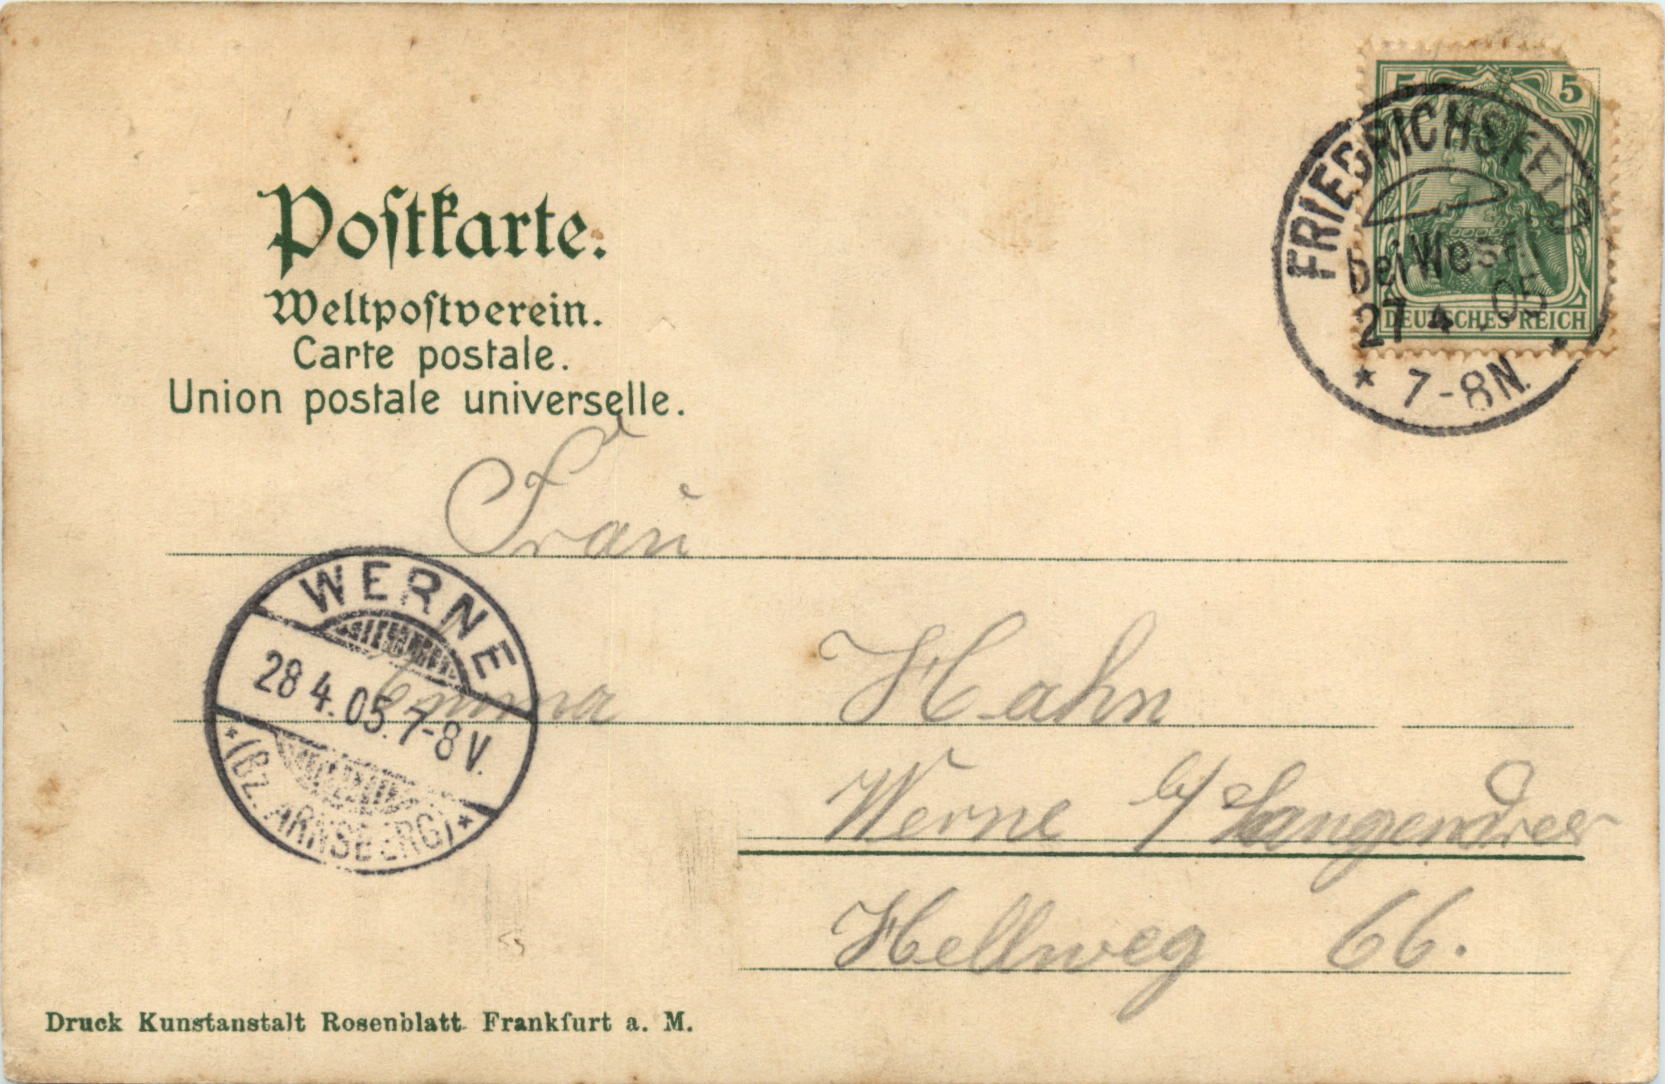 5 5
DEUTSCHES REICH
FRIEDRICHSFELD
bei Wesel
27 4 .05
* 7-8N. *
Postkarte.
Weltpostverein.
Carte postale.
Union postale universelle.
Frau
Emma Hahn
Werne b/ Langendreer
Hellweg 66.
WERNE
28 4. 05. 7-8 V.
* (BZ. ARNSBERG) *
Druck Kunstanstalt Rosenblatt Frankfurt a. M.